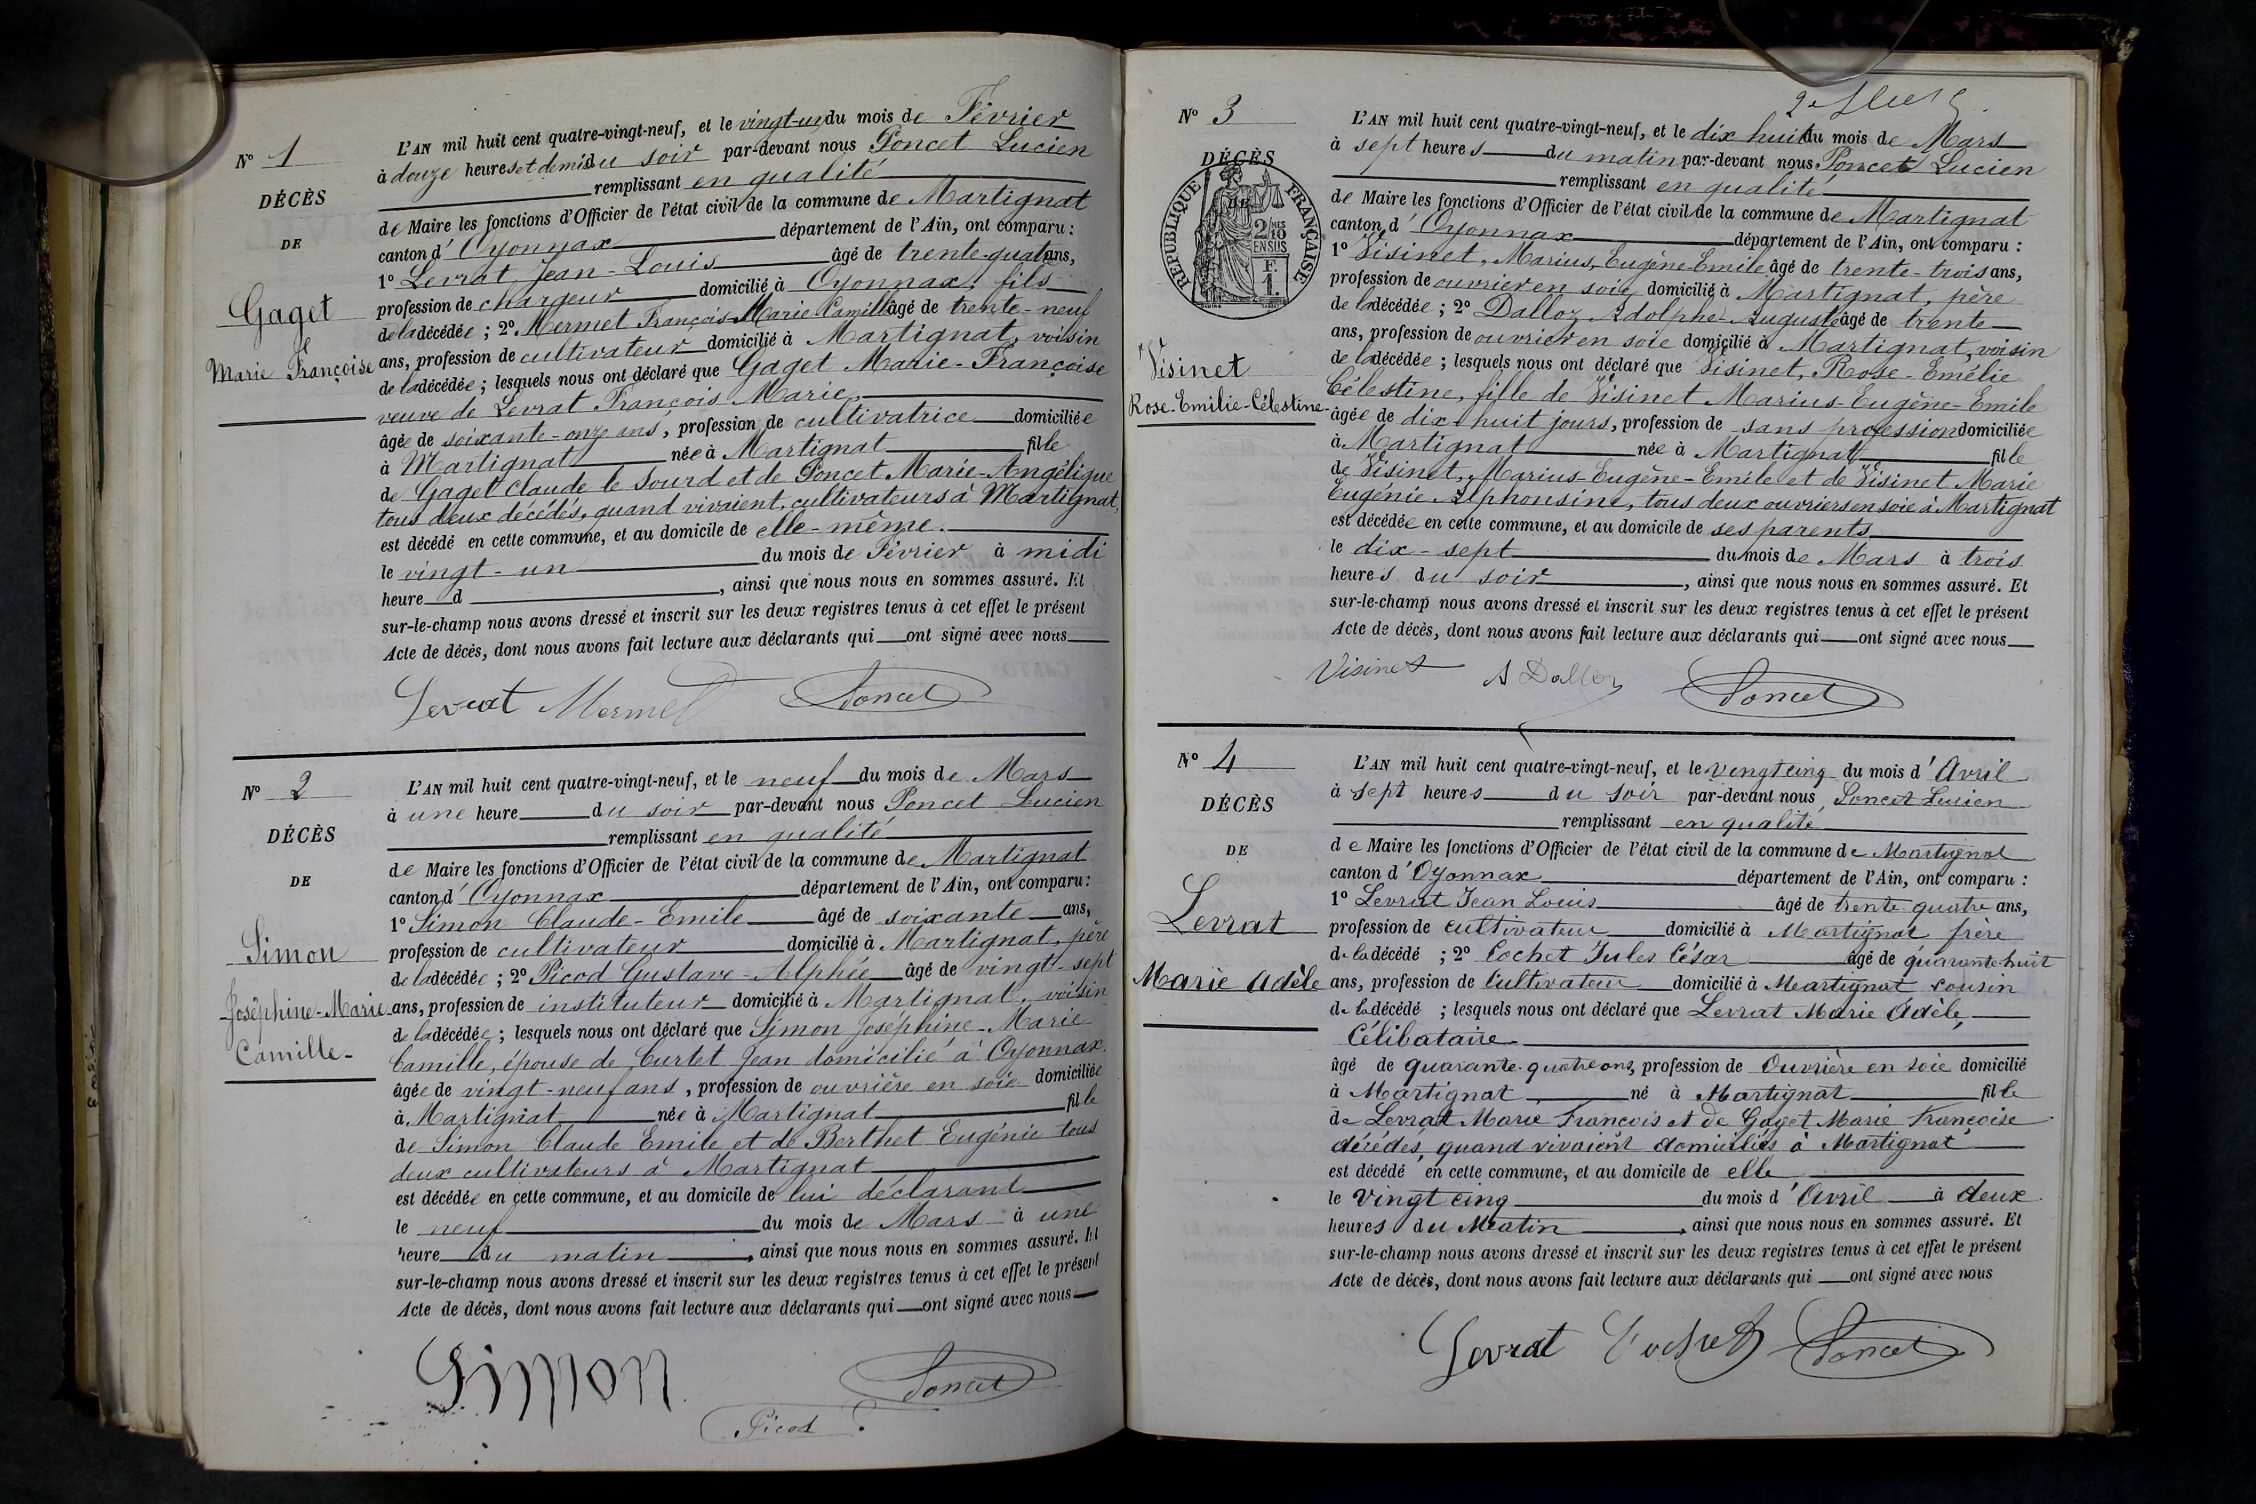 N° 1
DÉCÈS
DE
Gaget
Marie Françoise
L'AN mil huit cent quatre-vingt-neuf, et le vingt-un du mois de Février
à douze heures et demie du soir par-devant nous Poncet Lucien
remplissant en qualité
de Maire les fonctions d'Officier de l'état civil de la commune de Martignat
canton d'Oyonnax département de l'Ain, ont comparu :
1° Levrat Jean-Louis âgé de trente-quatre ans,
profession de chargeur domicilié à Oyonnax, fils
de la décédée ; 2° Mermet François-Marie Camille âgé de trente-neuf
ans, profession de cultivateur domicilié à Martignat, voisin
de la décédée ; lesquels nous ont déclaré que Gaget Marie-Françoise
veuve de Levrat François Marie,
âgée de soixante-onze ans, profession de cultivatrice domiciliée
à Martignat née à Martignat fille
de Gaget Claude le Sourd et de Poncet Marie-Angélique
tous deux décédés, quand vivaient, cultivateurs à Martignat,
est décédé en cette commune, et au domicile de elle-même.
le vingt-un du mois de Février à midi
heure d , ainsi que nous nous en sommes assuré. Et
sur-le-champ nous avons dressé et inscrit sur les deux registres tenus à cet effet le présent
Acte de décès, dont nous avons fait lecture aux déclarants qui ont signé avec nous
Levrat Mermet Poncet
N° 2
DÉCÈS
DE
Simon
Joséphine-Marie
Camille
L'AN mil huit cent quatre-vingt-neuf, et le neuf du mois de Mars
à une heure du soir par-devant nous Poncet Lucien
remplissant en qualité
de Maire les fonctions d'Officier de l'état civil de la commune de Martignat
canton d'Oyonnax département de l'Ain, ont comparu :
1° Simon Claude-Emile âgé de soixante ans,
profession de cultivateur domicilié à Martignat, père
de la décédée ; 2° Picod Gustave-Alphée âgé de vingt-sept
ans, profession de instituteur domicilié à Martignat, voisin
de la décédée ; lesquels nous ont déclaré que Simon Joséphine-Marie
Camille, épouse de Curtet Jean domicilié à Oyonnax.
âgée de vingt-neuf ans, profession de ouvrière en soie domiciliée
à Martignat née à Martignat fille
de Simon Claude Emile et de Berthet Eugénie tous
deux cultivateurs à Martignat
est décédée en cette commune, et au domicile de lui déclarant
le neuf du mois de Mars à une
heure du matin , ainsi que nous nous en sommes assuré. Et
sur-le-champ nous avons dressé et inscrit sur les deux registres tenus à cet effet le présent
Acte de décès, dont nous avons fait lecture aux déclarants qui ont signé avec nous
Simon Poncet
Picod
N° 3
DÉCÈS
DE
RÉPUBLIQUE FRANÇAISE
2/10 EN SUS
F. 1
Visinet
Rose-Emilie-Célestine
L'AN mil huit cent quatre-vingt-neuf, et le dix huit du mois de Mars
à sept heures du matin par-devant nous Poncet Lucien
remplissant en qualité
de Maire les fonctions d'Officier de l'état civil de la commune de Martignat
canton d'Oyonnax département de l'Ain, ont comparu :
1° Visinet, Marius, Eugène-Emile âgé de trente-trois ans,
profession de ouvrier en soie domicilié à Martignat, père
de la décédée ; 2° Dalloz Adolphe-Auguste âgé de trente
ans, profession de ouvrier en soie domicilié à Martignat, voisin
de la décédée ; lesquels nous ont déclaré que Visinet, Rose-Emélie
Célestine, fille de Visinet Marius-Eugène-Emile
âgée de dix huit jours, profession de sans profession domiciliée
à Martignat née à Martignat fille
de Visinet, Marius-Eugène-Emile et de Visinet Marie
Eugénie Alphonsine, tous deux ouvriers en soie à Martignat
est décédée en cette commune, et au domicile de ses parents
le dix-sept du mois de Mars à trois
heures du soir , ainsi que nous nous en sommes assuré. Et
sur-le-champ nous avons dressé et inscrit sur les deux registres tenus à cet effet le présent
Acte de décès, dont nous avons fait lecture aux déclarants qui ont signé avec nous
Visinet A Dalloz Poncet
N° 4
DÉCÈS
DE
Levrat
Marie Adèle
L'AN mil huit cent quatre-vingt-neuf, et le vingt cinq du mois d'Avril
à sept heures du soir par-devant nous, Poncet Lucien
remplissant en qualité
de Maire les fonctions d'Officier de l'état civil de la commune de Martignat
canton d'Oyonnax département de l'Ain, ont comparu :
1° Levrat Jean Louis âgé de trente quatre ans,
profession de cultivateur domicilié à Martignat frère
de la décédé ; 2° Cochet Jules César âgé de quarante huit
ans, profession de Cultivateur domicilié à Martignat cousin
de la décédé ; lesquels nous ont déclaré que Levrat Marie Adèle,
Célibataire
âgé de quarante-quatre ans, profession de Ouvrière en soie domicilié
à Martignat né à Martignat fille
de Levrat Marie François et de Gaget Marie Françoise
décédés, quand vivaient domiciliés à Martignat
est décédé en cette commune, et au domicile de elle
le vingt cinq du mois d'Avril à deux
heures du Matin , ainsi que nous nous en sommes assuré. Et
sur-le-champ nous avons dressé et inscrit sur les deux registres tenus à cet effet le présent
Acte de décès, dont nous avons fait lecture aux déclarants qui ont signé avec nous
Levrat Cochet Poncet